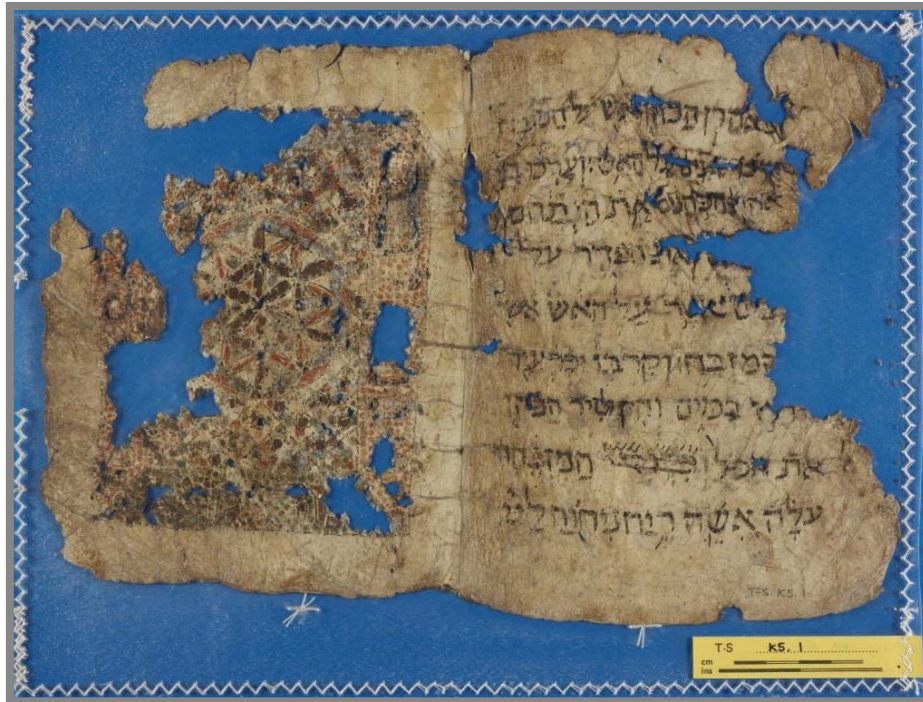 אהרן הכהן אש על המזבח
על האש וערכו
אהרן הכהנים את הנתחים
ואת הפדר על
אשר על האש אשר
המזבח וקרבו וכרעיו
במים והקטיר הכהן
את הכל המזבחה
עלה אשה ריח ניחוח ליי
T-S. K5. 1
T-S K5, 1
cm
ins